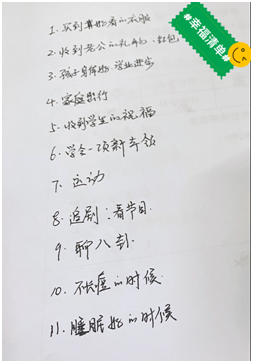 #幸福清单#
1. 买到算好看的衣服
2. 收到老公的礼物、红包
3. 孩子身体好 学业进步
4. 家庭出行
5. 收到学生的祝福
6. 学会一项新本领
7. 运动
8. 追剧：看节目
9. 聊八卦
10. 不长痘的时候
11. 睡眠好的时候